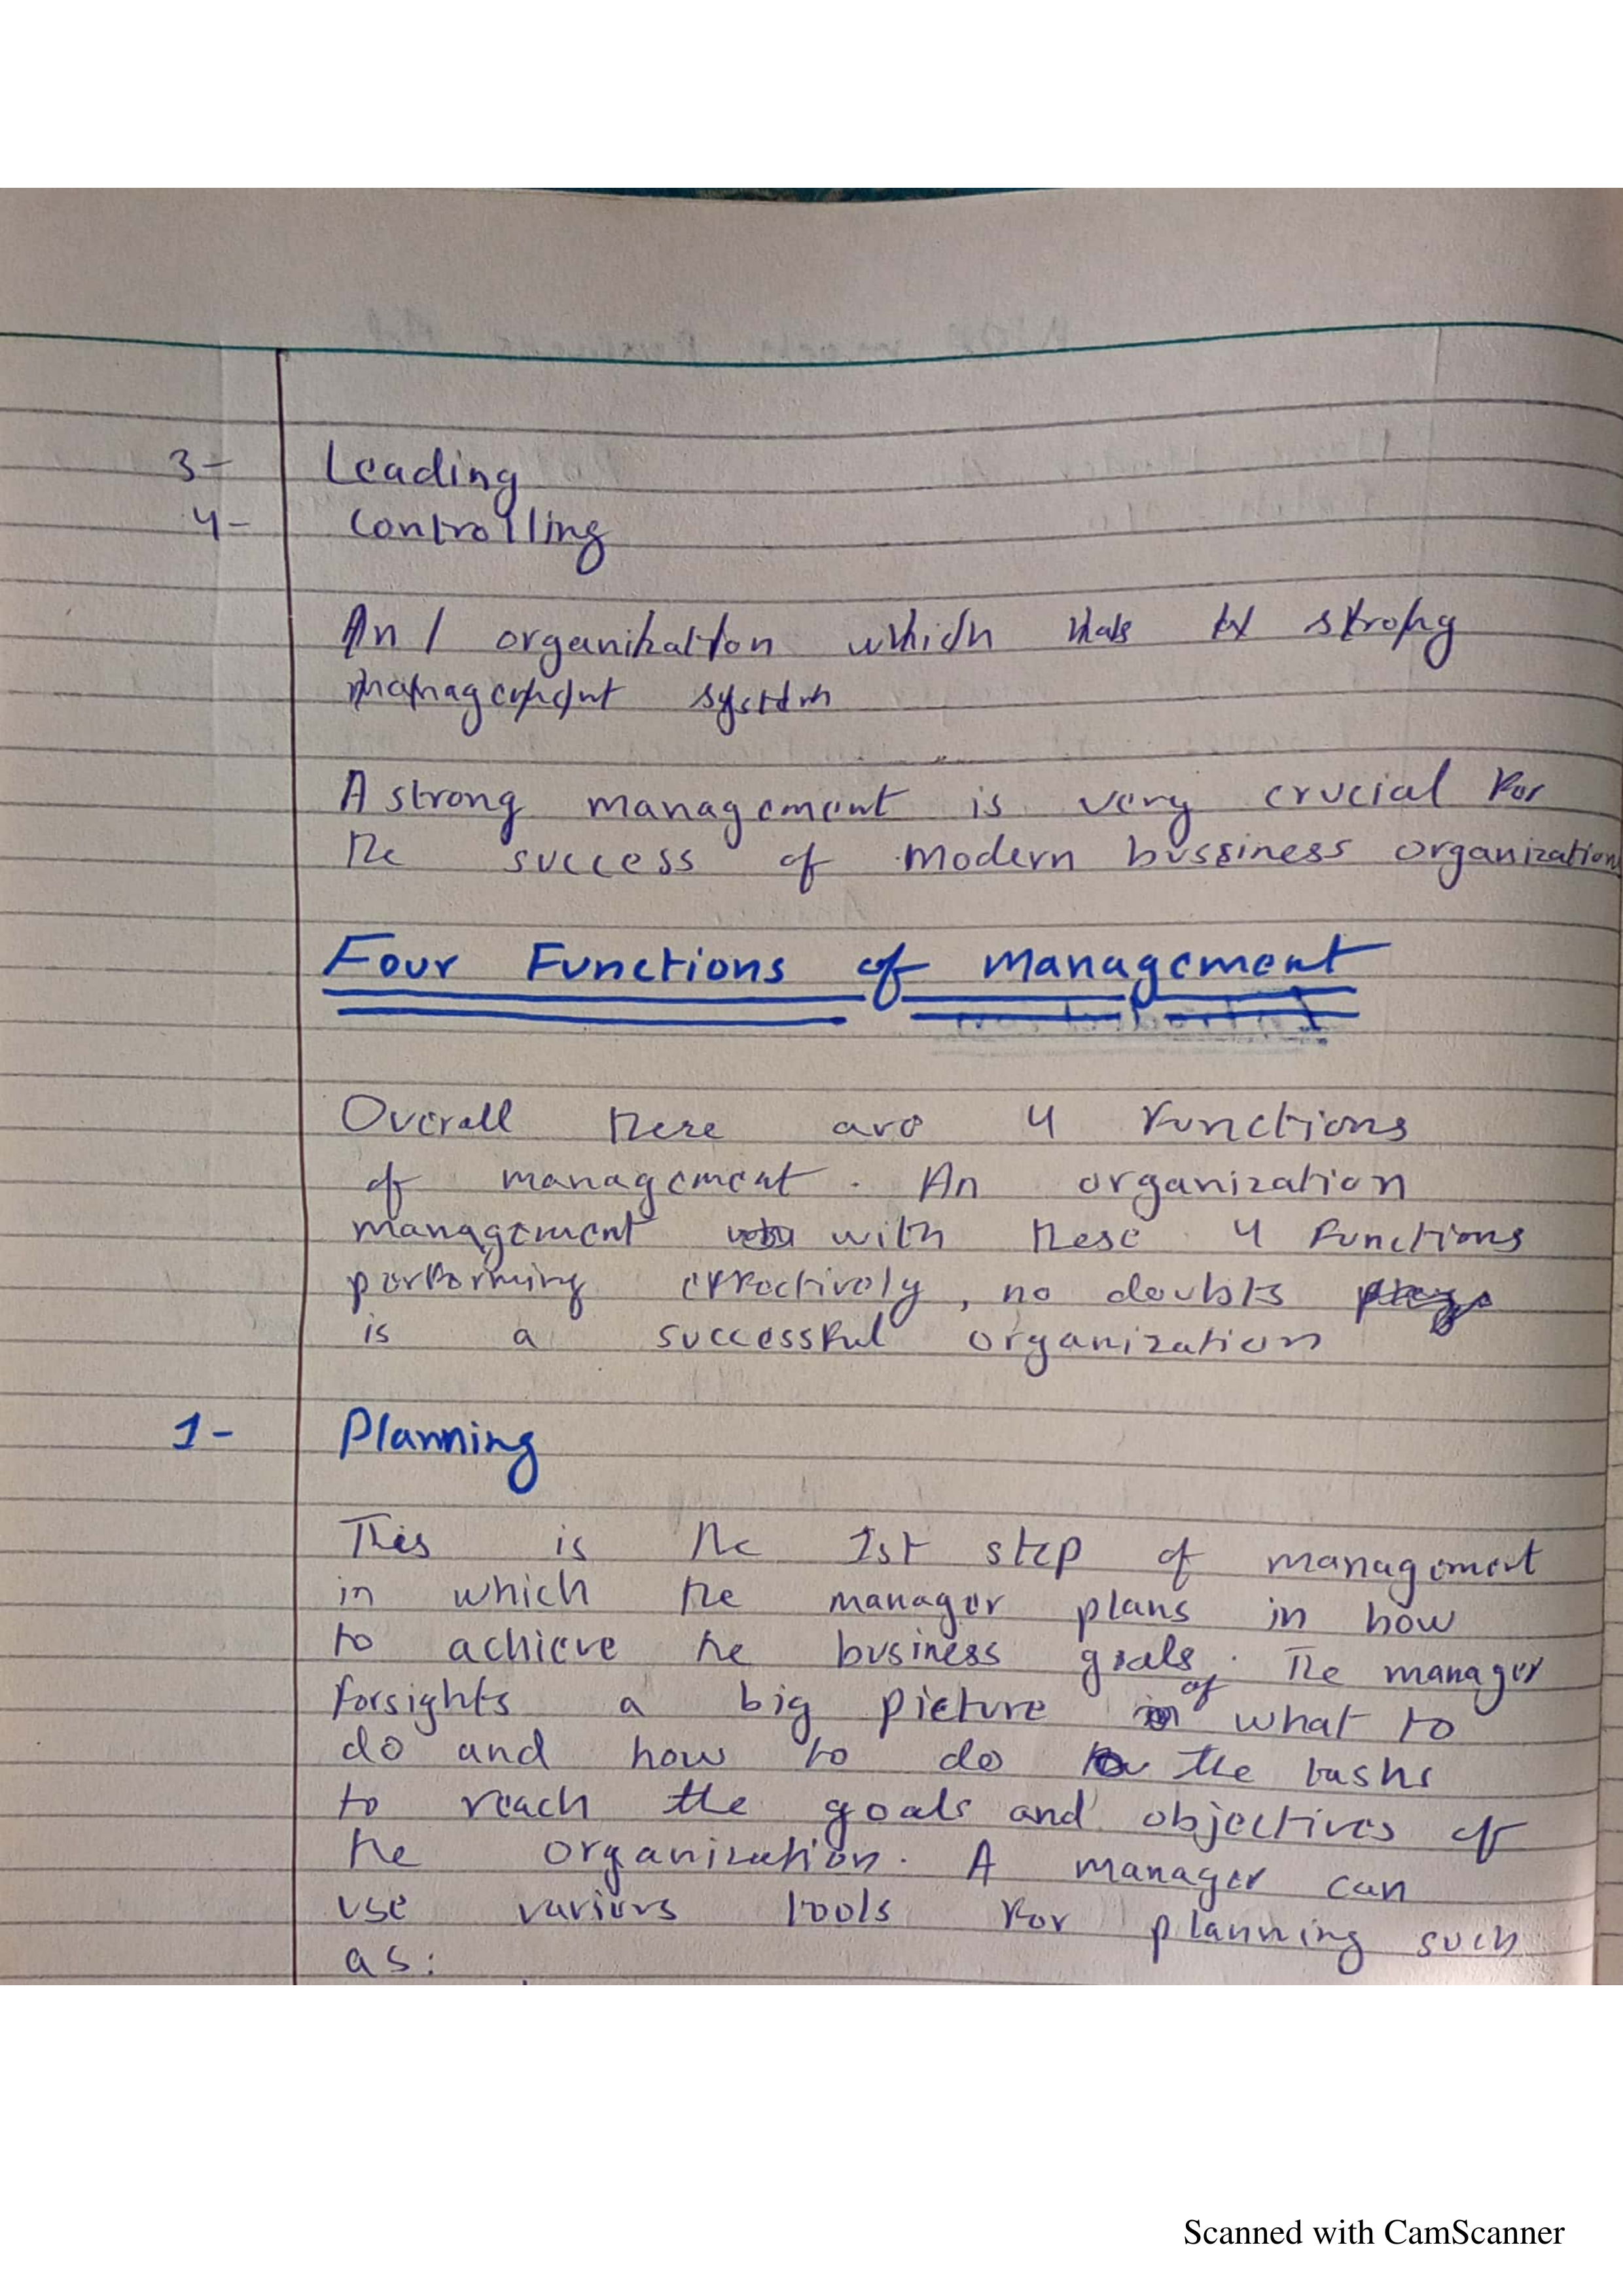 3- Leading
4- Controlling
An organization which has a strong
management system
A strong management is very crucial for
the success of modern bussiness organization
Four Functions of management
Overall there are 4 functions
of management. An organization
management with these 4 functions
performing effectively, no doubts
is a successful organization
1- Planning
This is the 1st step of management
in which the manager plans in how
to achieve the business goals. The manager
forsights a big picture of what to
do and how to do the tasks
to reach the goals and objectives of
the organization. A manager can
use various tools for planning such
as:
Scanned with CamScanner